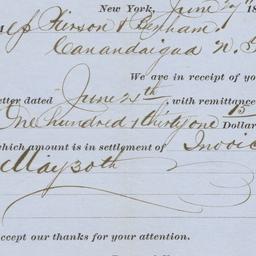 New York, June 27th 18
Pierson & Benham
Canandaigua N.
We are in receipt of yo
etter dated June 25th, with remittance
One hundred & thirty one 15 Dollar
which amount is in settlement of Invoic
May 30th
ccept our thanks for your attention.